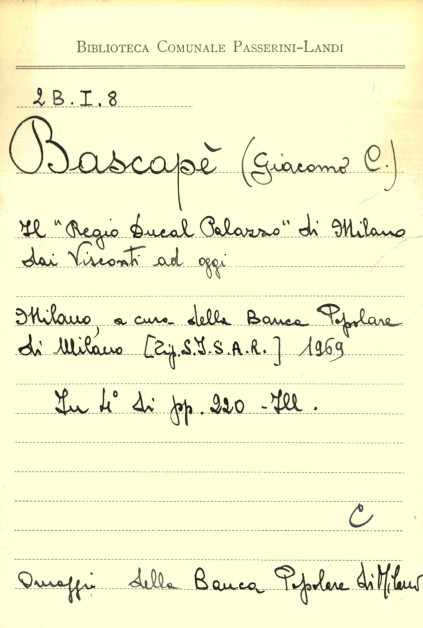 BIBLIOTECA COMUNALE PASSERINI-LANDI
2B.I.8
Bascapè (Giacomo C.)
Il "Regio Ducal Palazzo" di Milano
dai Visconti ad oggi
Milano, a cura della Banca Popolare
di Milano [Tip. S.I.S.A.R.] 1969
In 4° di pp. 220 - Ill.
C
Omaggio della Banca Popolare di Milano